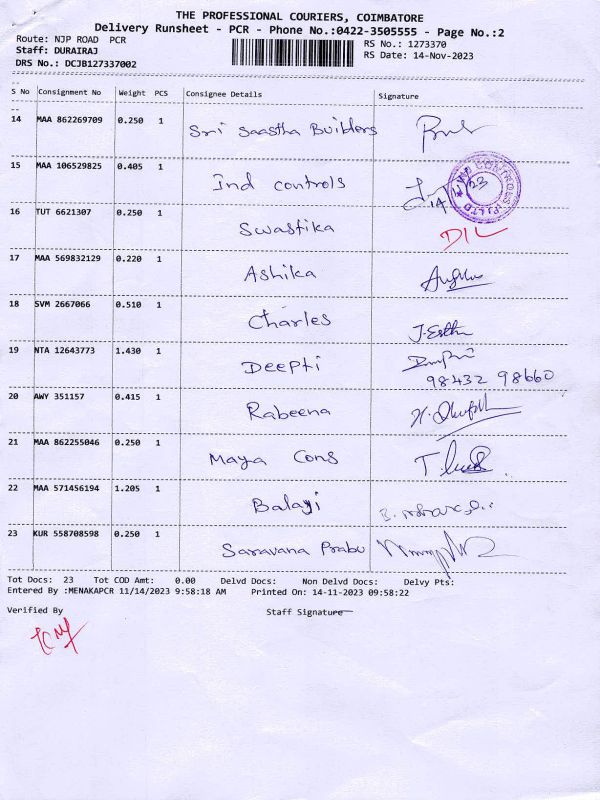 THE PROFESSIONAL COURIERS, COIMBATORE
Delivery Runsheet - PCR - Phone No.:0422-3505555 - Page No.:2
Route: NJP ROAD PCR RS No.: 1273370
Staff: DURAIRAJ RS Date: 14-Nov-2023
DRS No.: DCJB127337002
S No Consignment No Weight PCS Consignee Details Signature
14 MAA 862269709 0.250 1 Sri Saastha Builders
15 MAA 106529825 0.405 1 Ind controls
16 TUT 6621307 0.250 1 Swastika DIL
17 MAA 569832129 0.220 1 Ashika
18 SVM 2667066 0.510 1 Charles
19 NTA 12643773 1.430 1 Deepti
98432 98660
20 AWY 351157 0.415 1 Rabeena
21 MAA 862255046 0.250 1 Maya Cons
22 MAA 571456194 1.205 1 Balaji
23 KUR 558708598 0.250 1 Saravana Prabu
Tot Docs: 23 Tot COD Amt: 0.00 Delvd Docs: Non Delvd Docs: Delvy Pts:
Entered By :MENAKAPCR 11/14/2023 9:58:18 AM Printed On: 14-11-2023 09:58:22
Verified By Staff Signature